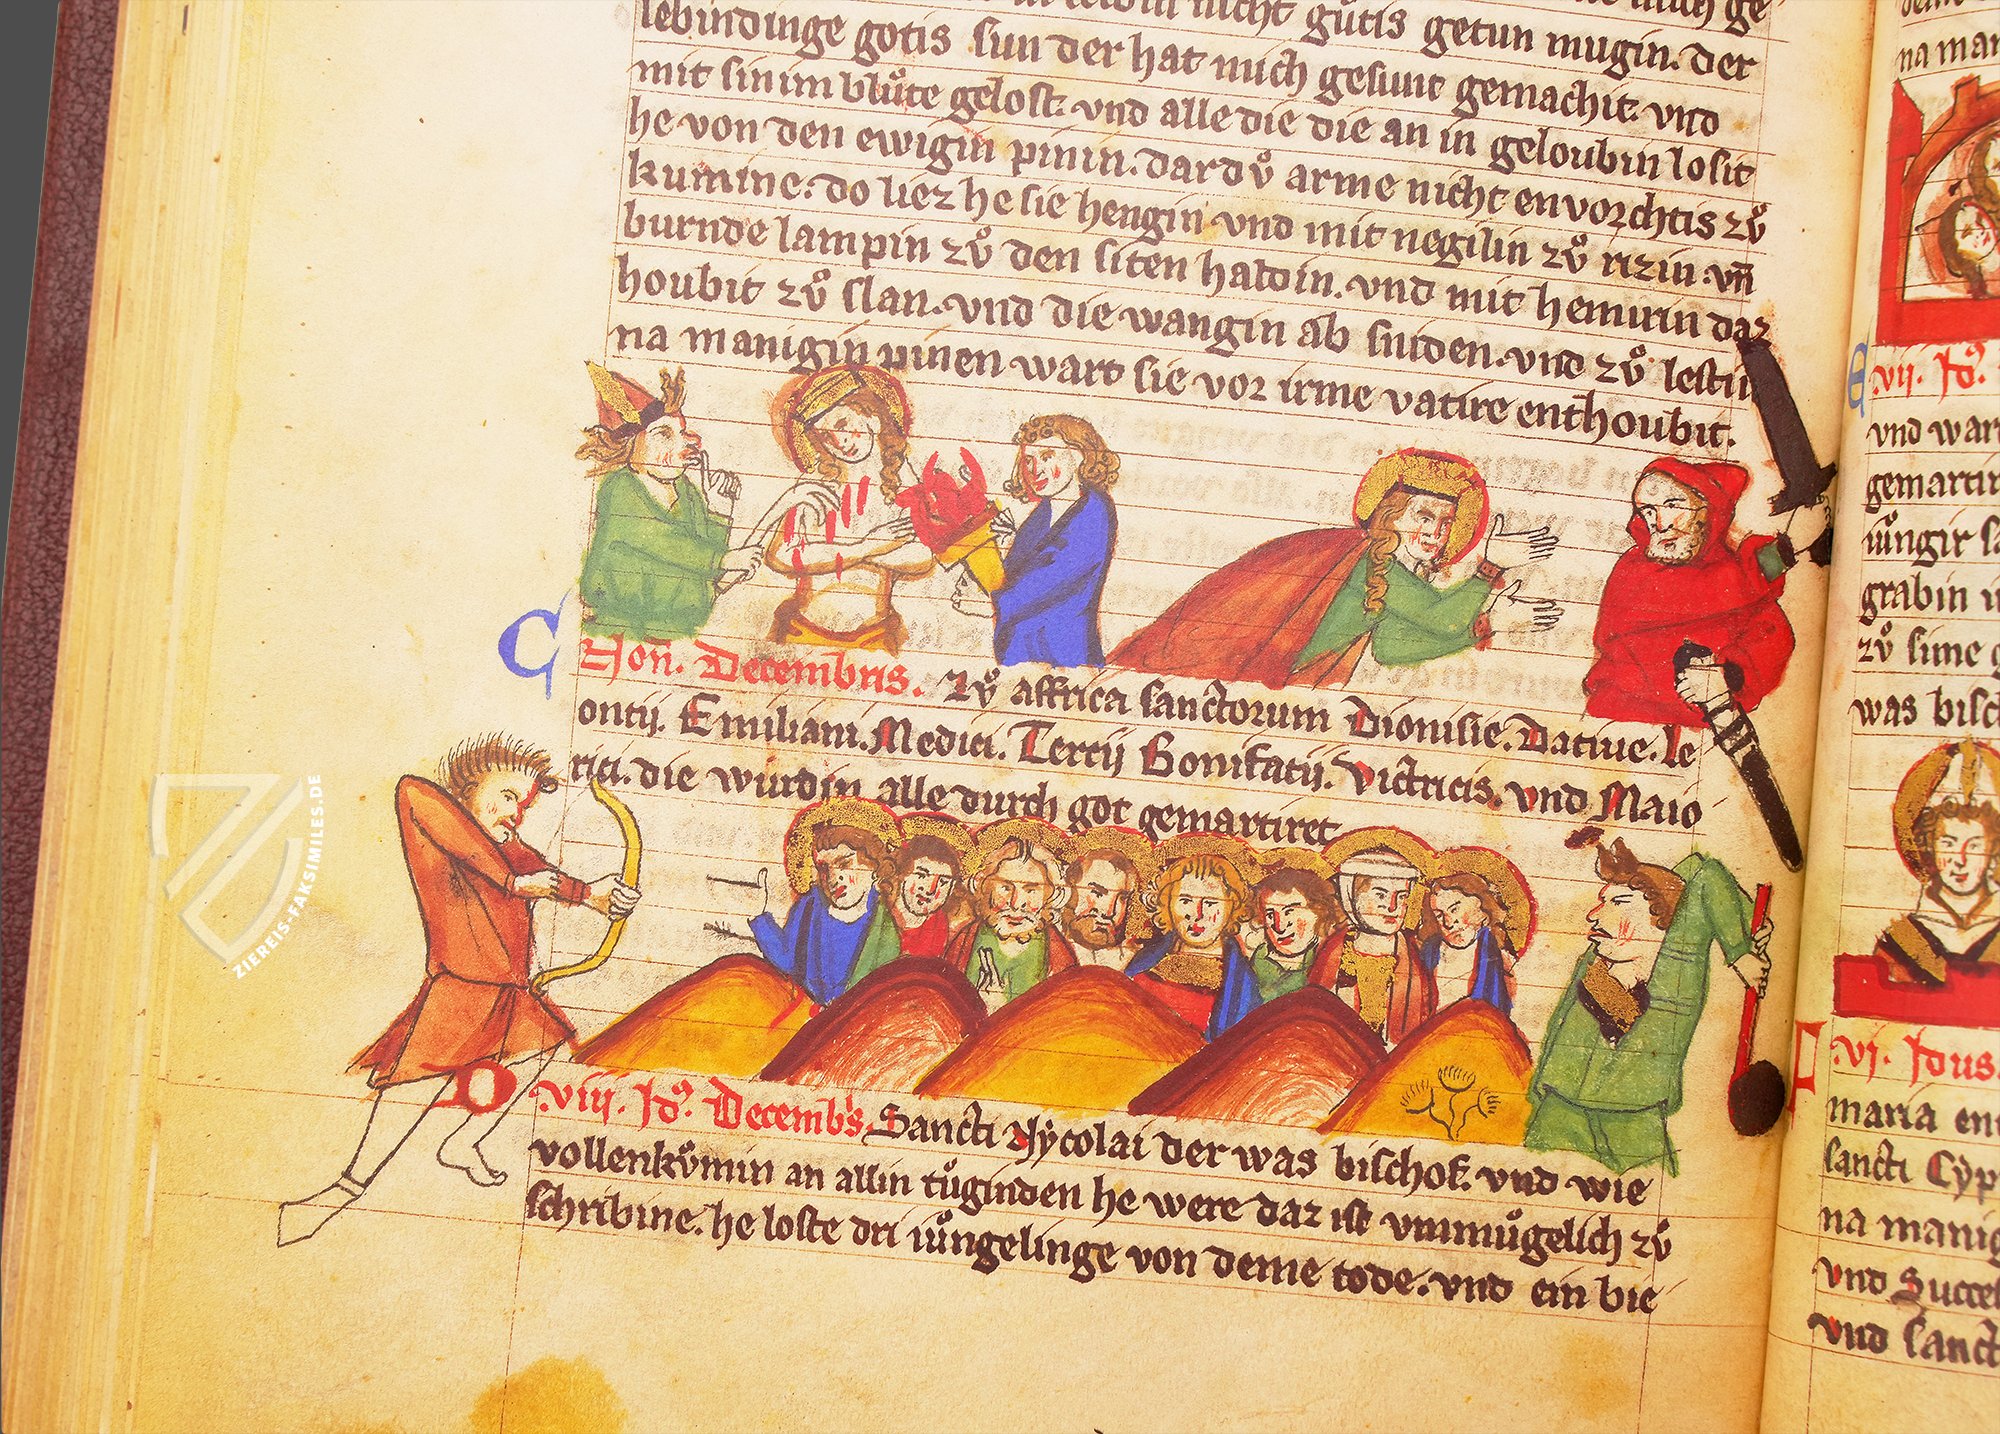 lebindinge gotis sun der hat mich gesunt gemachit. vnd
mit sinim blůte gelost. vnd alle die die an in geloubin losit
he von den ewigin pinin. dar dů arme nicht envorchtis zů
kumine. do liez he sie hengin vnd mit negilin zů rizin. vñ
burnde lampin zů den siten haldin. vnd mit hemirin daz
houbit zů slan. vnd die wangin ab sniden. vnd zů lestin
na manigin pinen wart sie vor irme vatire enthoubit.
C Noñ. Decembris. Zů affrica sanctorum Dionisie. Datiue. le
ontij. Emiliani. Medici. Tertij Bonifatij. Victricis. vnd Maio
rici. die wurdin alle durch got gemartiret
D viij. Id9. Decemb's. Sancti Nycolai der was bischof. vnd wie
vollenkůmin an allin tůginden he were daz ist vnmůgelich zů
schribine. he loste dri iůngelinge von deme tode. vnd ein bie
ZIEREIS-FAKSIMILES.DE
na man
E vij. Id9.
vnd wart
gemartir
iůngir sa
grabin
zů sime g
was bisc
F vj. Idus.
maria en
sancti Cyp
na manig
vnd Succes
vnd sanct